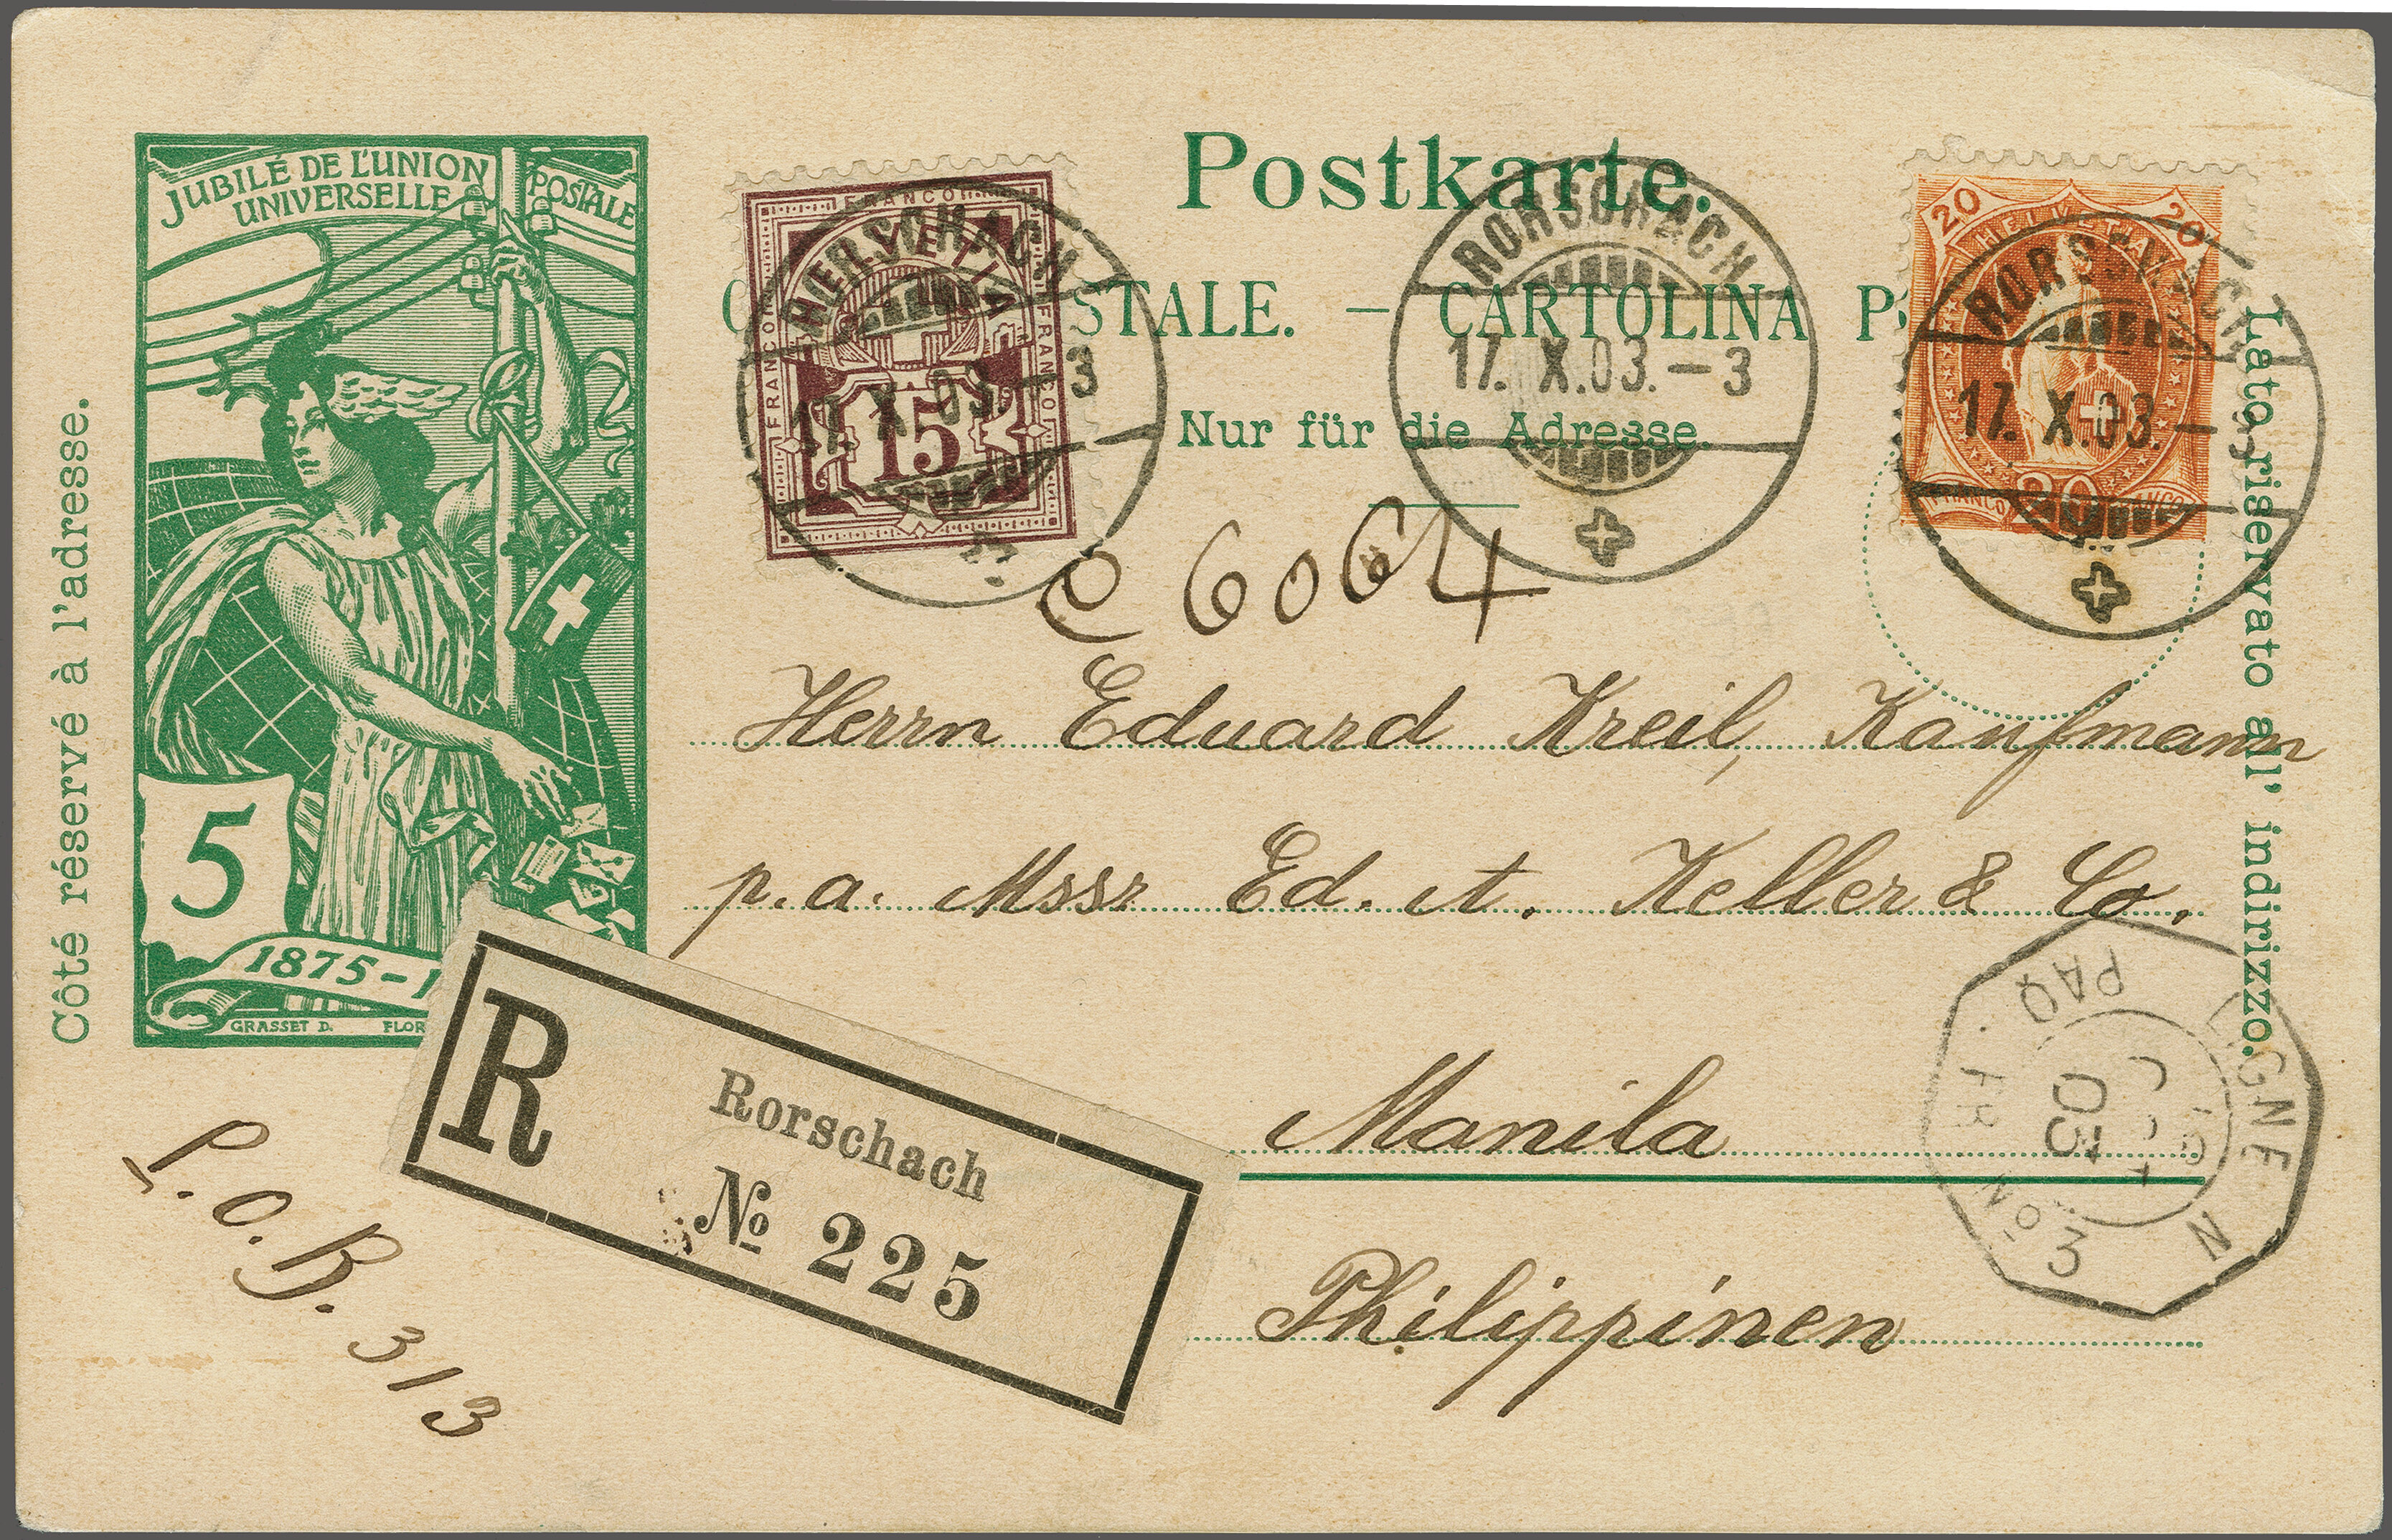 JUBILÉ DE L'UNION POSTALE
UNIVERSELLE
5
1875-1
GRASSET D. FLOR
Côté réservé à l'adresse.
Postkarte.
STALE. — CARTOLINA P
Nur für die Adresse.
Lato riservato all' indirizzo.
FRANCO
FRANCO
FRANCO
HELVETIA
15
20
20
HELVETIA
FRANCO
20
FRANCO
RORSCHACH
17. X.03.–3
RORSCHACH
17. X.03.–3
RORSCHACH
17. X.03.–3
6064
Herrn Eduard Kreil, Kaufmann
p.a. Mssr Ed. A. Keller & Co.
Manila
Philippinen
R
Rorschach
№ 225
P.O.B. 313
LIGNE N
PAQ. FR. Nº 3
OCT
03